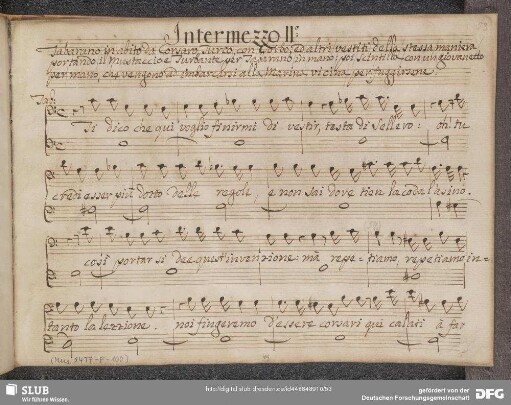 Intermezzo II.º
Tabarano in abito da Corsaro Turco, con Corbo, ed altri vestiti della stessa maniera
portando il mustaccio e Turbante per Tabarano in mano; poi Scintilla con un giovanetto
per mano, che vengono ad imbarcarsi alla Marina vicina per fuggirsene
Tab:
Ti dico che qui voglio finirmi di vestir, testa di Sellero: oh tu
credi esser più dotto delle regole, e non sai dove tien la coda l'asino.
così portar si dee quest'invenzione: mà repetiamo, repetiamo in-
tanto la lezzione. noi fingeremo d'essere corsari qui calati à far
(Mus. 2477-F-100)
SLUB
Wir führen Wissen.
gefördert von der
Deutschen Forschungsgemeinschaft
DFG